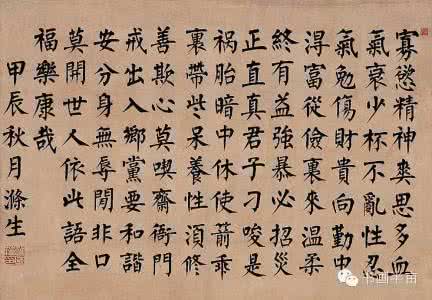 寡慾精神爽思多血
氣衰少杯不亂性忍
氣勉傷財貴向勤中
淂富從儉裏來温柔
終有益強暴必招災
正直真君子刁唆是
祸胎暗中休使箭乖
裏帶些呆養性湏修
善欺心莫喫齋衙門
戒出入鄉黨要和諧
安分身無辱閒非口
莫開世人依此語全
福樂康哉
甲辰秋月滌生
书画半亩